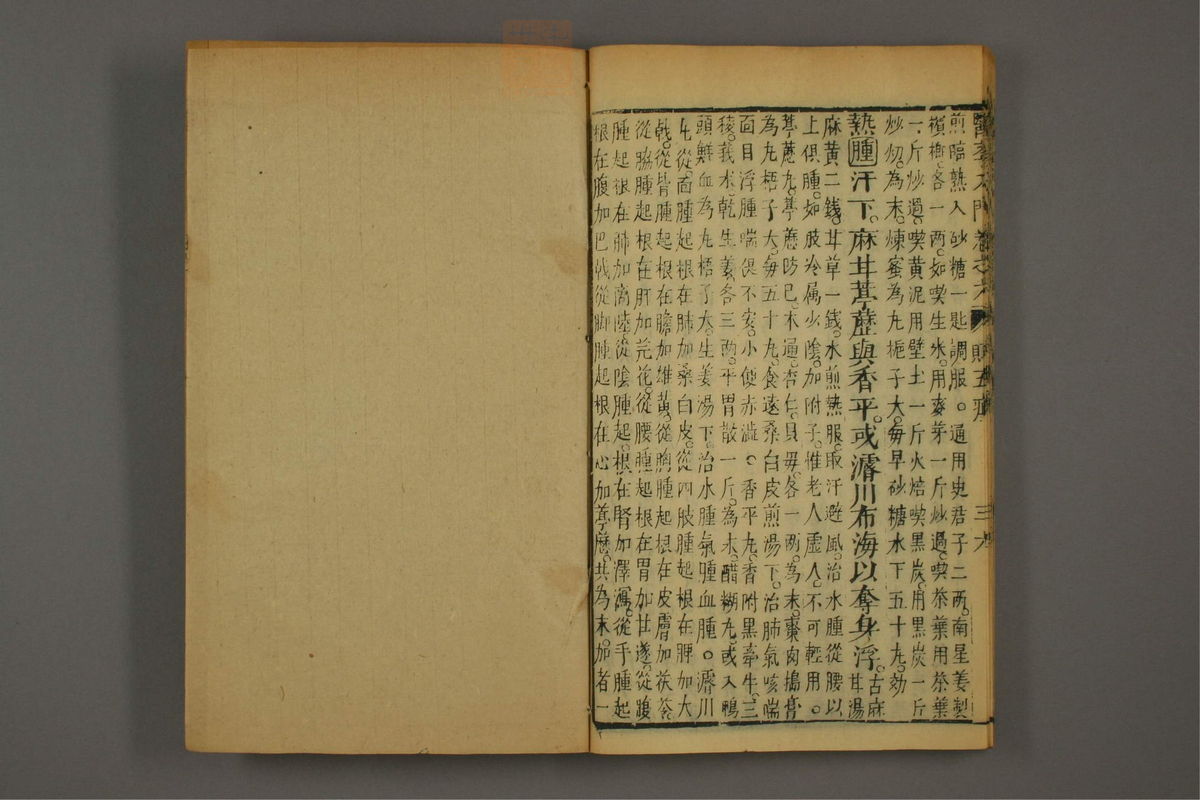 醫學入門卷之六 賦 三六
煎臨熟入砂糖一匙調服。通用史君子二兩。南星姜製
檳榔。各一兩。如喫生米。用麥芽一斤炒過。喫茶葉用茶葉
一斤炒過。喫黃泥用壁土一斤火焙喫黑炭。用黑炭一斤
炒。為末。煉蜜為丸梔子大。每早砂糖水下五十丸。効
熱腫汗下。麻甘葶藶與香平。或濬川布海以奪身浮。古麻甘湯
麻黃二錢。甘草一錢。水煎熱服。取汗避風。治水腫從腰以
上俱腫。如肢冷属少陰。加附子。惟老人虛人。不可輕用。
葶藶丸。葶藶防巳。木通。杏仁。貝毋。各一兩。為末。棗肉搗膏
為丸梧子大。每五十丸。食遠桑白皮煎湯下。治肺氣咳喘
面目浮腫喘偎不安。小便赤澁。香平丸。香附黑牽牛。三
稜。莪朮。乾生姜。各三兩。平胃散一斤。為末。醋糊丸。或入鴨
頭鮮血為丸梧子大。生姜湯下。治水腫氣腫血腫。濬川
丸。從面腫起根在肺加桑白皮。從四肢腫起根在脾加大
戟。從背腫起根在膽加雄黃。從胸腫起根在皮膚加茯苓
從脇腫起根在肝加芫花。從腰腫起根在胃加甘遂。從腹
腫起根在肺加商陸從陰腫起。根在腎加澤瀉。從手腫起
根在腹加巴戟從脚腫起根在心加葶藶。共為末。加者一